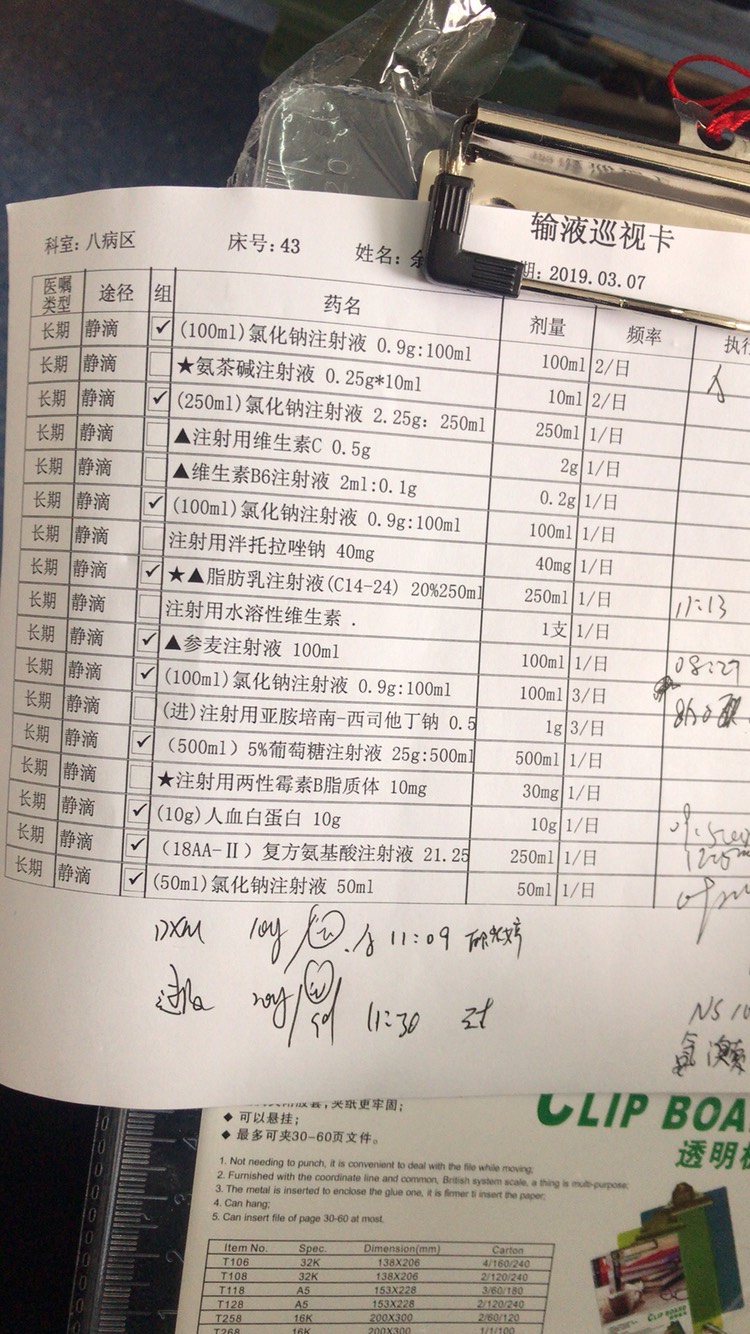 输液巡视卡
科室：八病区 床号：43 姓名：余 期：2019.03.07
医嘱类型 途径 组 药名 剂量 频率 执行
长期 静滴 ✓ (100ml)氯化钠注射液 0.9g:100ml 100ml 2/日
长期 静滴 ★氨茶碱注射液 0.25g*10ml 10ml 2/日
长期 静滴 ✓ (250ml)氯化钠注射液 2.25g：250ml 250ml 1/日
长期 静滴 ▲注射用维生素C 0.5g 2g 1/日
长期 静滴 ▲维生素B6注射液 2ml:0.1g 0.2g 1/日
长期 静滴 ✓ (100ml)氯化钠注射液 0.9g:100ml 100ml 1/日
长期 静滴 注射用泮托拉唑钠 40mg 40mg 1/日
长期 静滴 ✓ ★▲脂肪乳注射液(C14-24) 20%250ml 250ml 1/日 11:13
长期 静滴 注射用水溶性维生素 . 1支 1/日
长期 静滴 ✓ ▲参麦注射液 100ml 100ml 1/日 08:27
长期 静滴 ✓ (100ml)氯化钠注射液 0.9g:100ml 100ml 3/日
长期 静滴 (进)注射用亚胺培南-西司他丁钠 0.5 1g 3/日
长期 静滴 ✓ （500ml）5%葡萄糖注射液 25g:500ml 500ml 1/日
长期 静滴 ★注射用两性霉素B脂质体 10mg 30mg 1/日
长期 静滴 ✓ (10g)人血白蛋白 10g 10g 1/日
长期 静滴 ✓ （18AA-Ⅱ）复方氨基酸注射液 21.25 250ml 1/日
长期 静滴 ✓ (50ml)氯化钠注射液 50ml 50ml 1/日
DXM 11:09
11:30
NS 10
◆ 可以悬挂；
◆ 最多可夹30-60页文件。
CLIP BOA
透明
1. Not needing to punch, it is convenient to deal with the file while moving;
2. Furnished with the coordinate line and common, British system scale, a thing is multi-purpose;
3. The metal is inserted to enclose the glue one, it is firmer ti insert the paper;
4. Can hang;
5. Can insert file of page 30-60 at most.
Item No. Spec. Dimension(mm) Carton
T106 32K 138X206 4/160/240
T108 32K 138X206 2/120/240
T118 A5 153X228 3/60/180
T128 A5 153X228 2/120/240
T258 16K 200X300 2/60/120
T268 16K 200X300 1/1/100
CLIP BOARD